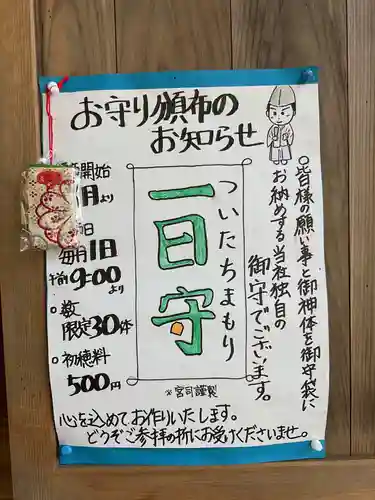 お守り頒布の
お知らせ
○皆様の願い事と御神体を御守袋に
お納めする当社独自の
御守でございます。
ついたちまもり
一日守
※宮司謹製
開始
月より
毎月1日
午前9:00より
○数
限定30体
○初穂料
500円
心を込めてお作りいたします。
どうぞご参拝の折にお受けくださいませ。